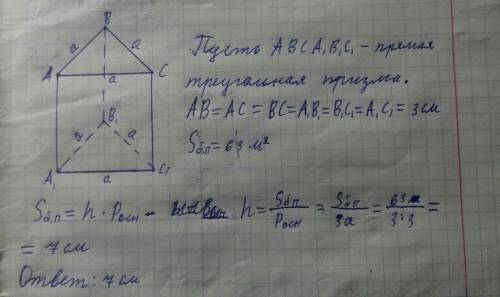 B
a a
A a C
B₁
a a
A₁ a C₁
Пусть ABCA₁B₁C₁ – прямая
треугальная призма.
AB = AC = BC = A₁B₁ = B₁C₁ = A₁C₁ = 3 см
Sб.п = 63 м²
Sб.п = h · Pосн - h = Sб.п/Pосн = Sб.п/3a = 63/3·3 =
= 7 см
Ответ: 7 см